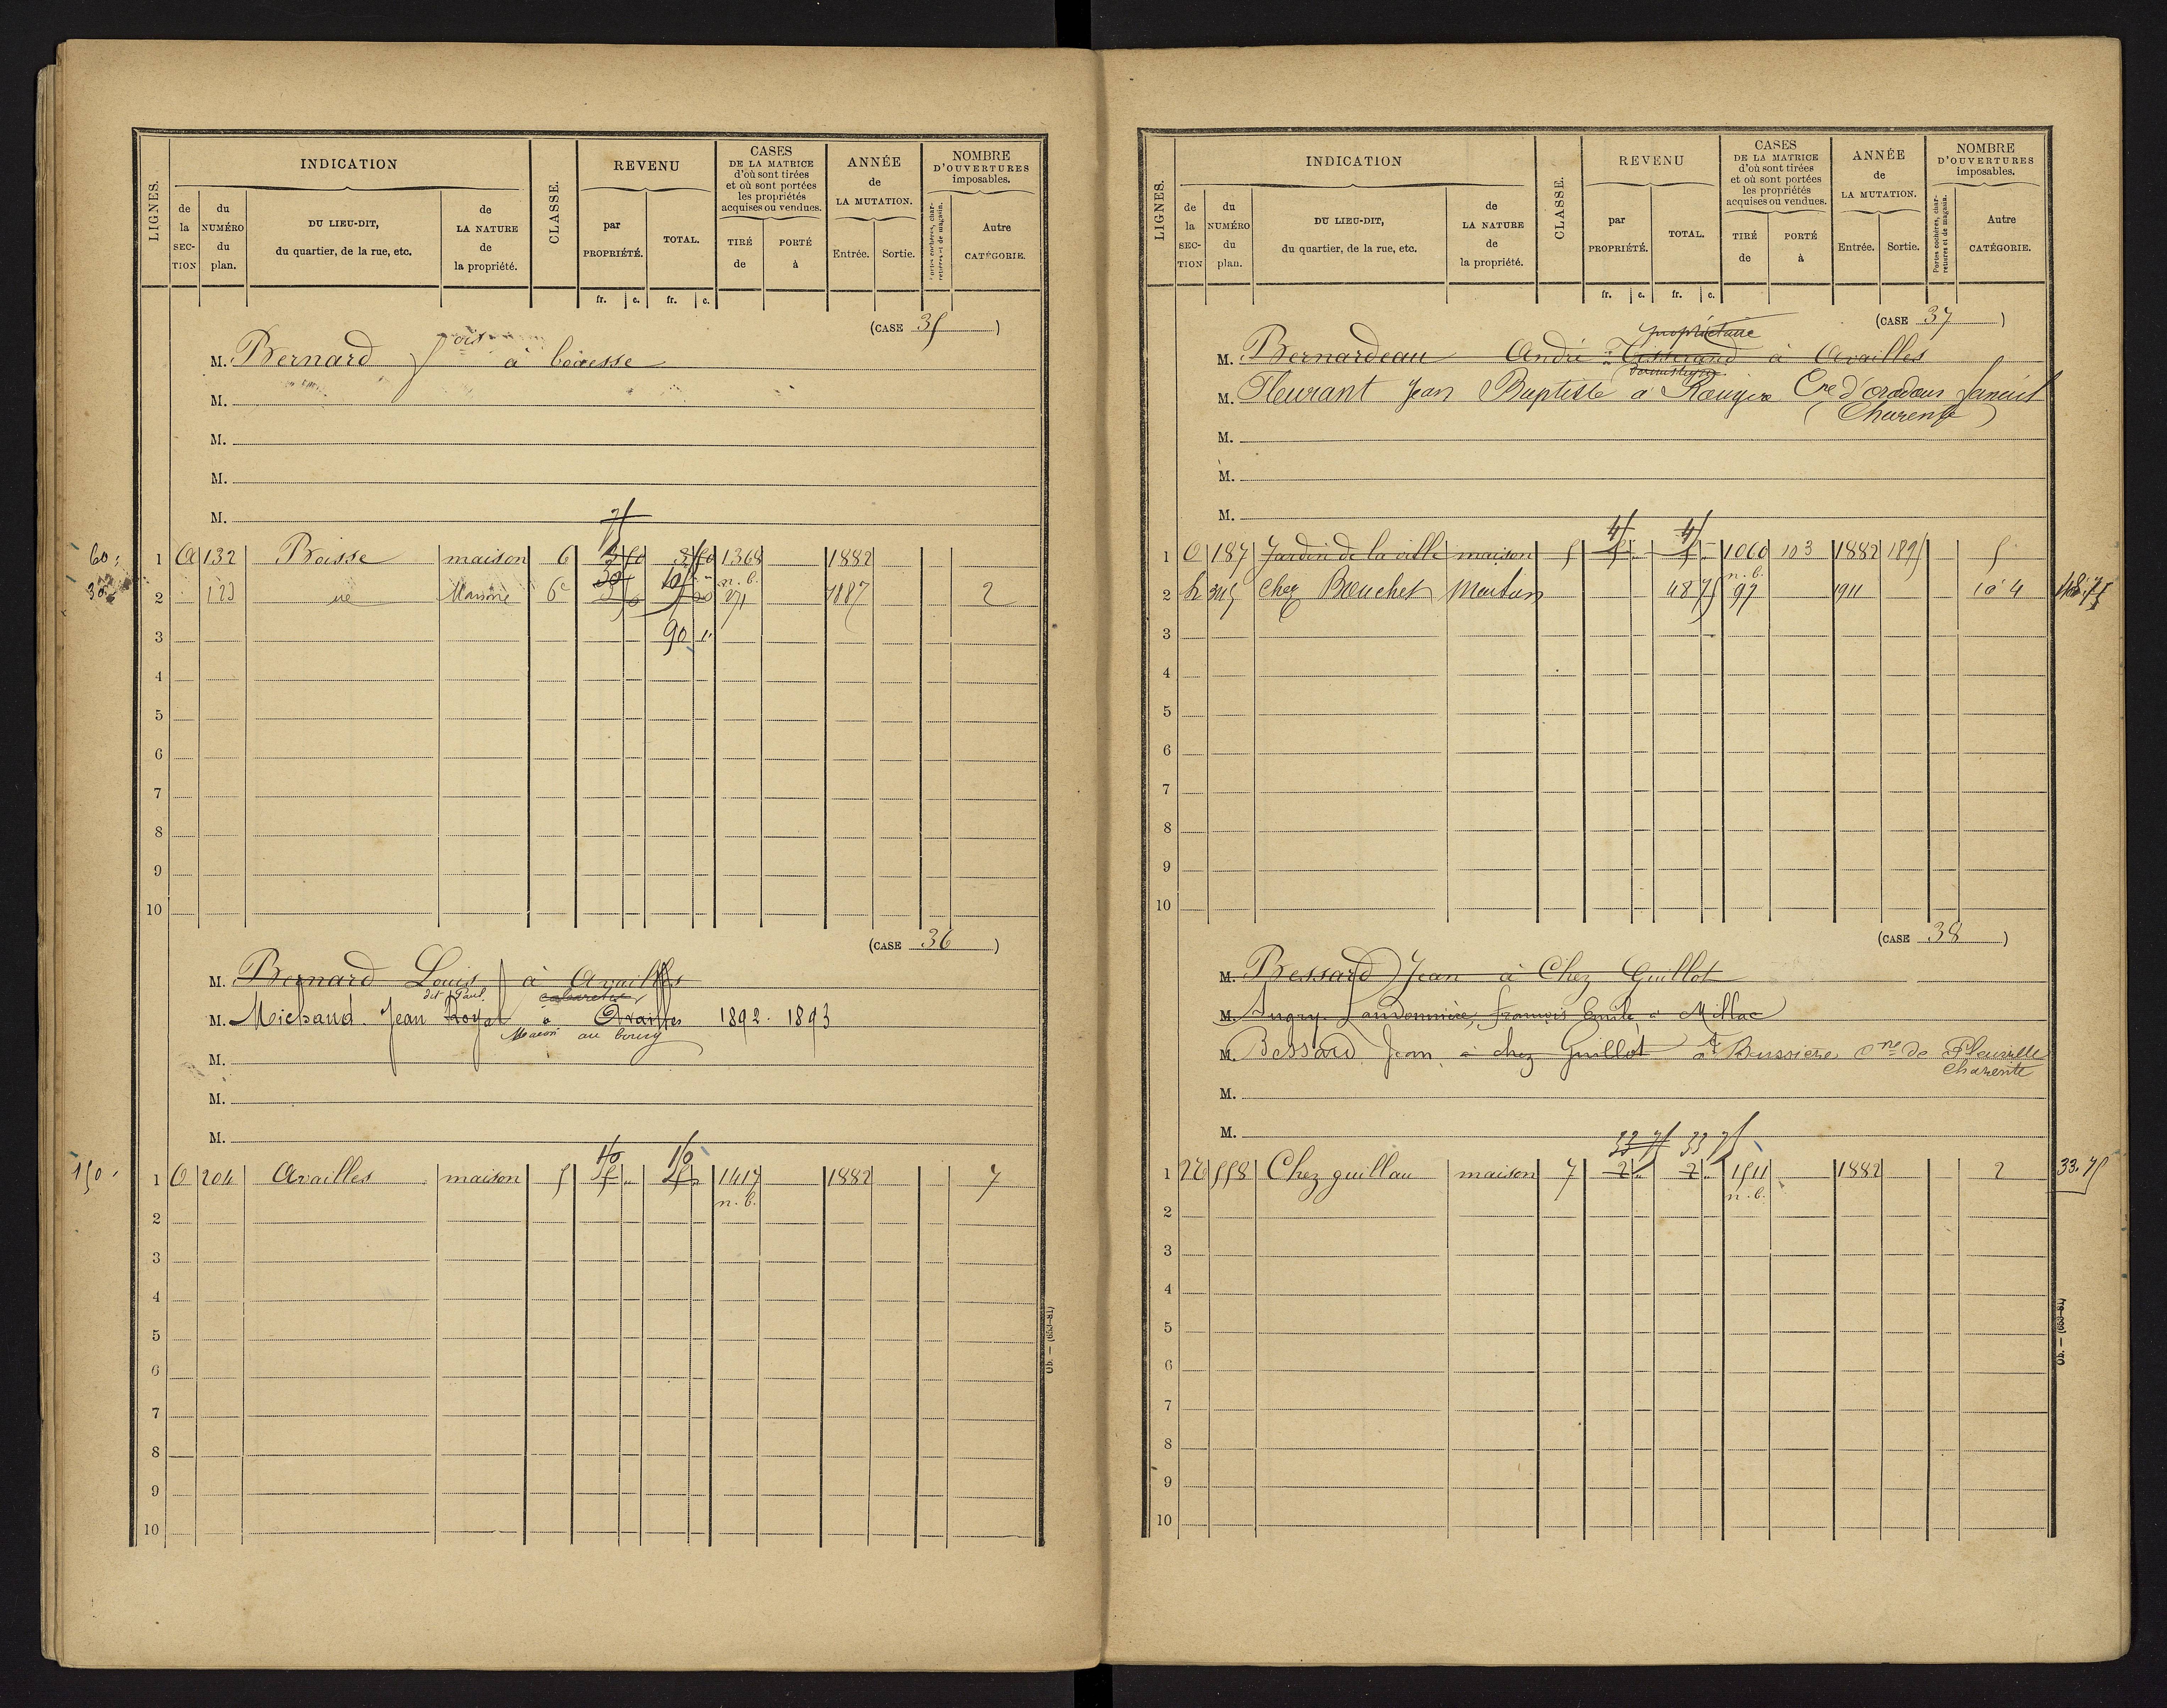 LIGNES.
INDICATION
CLASSE.
REVENU
CASES
DE LA MATRICE
d'où sont tirées
et où sont portées
les propriétés
acquises ou vendues.
ANNÉE
de
LA MUTATION.
NOMBRE
D'OUVERTURES
imposables.
de la SECTION
du NUMÉRO du plan.
DU LIEU-DIT,
du quartier, de la rue, etc.
de LA NATURE de la propriété.
par PROPRIÉTÉ.
TOTAL.
TIRÉ de
PORTÉ à
Entrée.
Sortie.
Portes cochères, charretières et de magasin.
Autre CATÉGORIE.
fr. c. fr. c.
(CASE 35)
M. Bernard à boiesse
M.
M.
M.
M.
75
60 1 132 Boisse maison 6 1368 1882
n. b.
30 2 Maison 6e 271 1887 2
3 90
4
5
6
7
8
9
10
(CASE 36)
M. Bernard Louis à Availles
dit Paul cabaretier
M. Michaud Jean à Availles 1892 1893
Macon au bourg
M.
M.
M.
150 150
150 1 204 Availles maison 5 1417 1882 7
n. b.
2
3
4
5
6
7
8
9
10
Ob. — (663-81)
LIGNES.
INDICATION
CLASSE.
REVENU
CASES
DE LA MATRICE
d'où sont tirées
et où sont portées
les propriétés
acquises ou vendues.
ANNÉE
de
LA MUTATION.
NOMBRE
D'OUVERTURES
imposables.
de la SECTION
du NUMÉRO du plan.
DU LIEU-DIT,
du quartier, de la rue, etc.
de LA NATURE de la propriété.
par PROPRIÉTÉ.
TOTAL.
TIRÉ de
PORTÉ à
Entrée.
Sortie.
Portes cochères, charretières et de magasin.
Autre CATÉGORIE.
fr. c. fr. c.
(CASE 37)
propriétaire
M. Bernardeau André Tisserand à Availles
M. Fleurant Jean Baptiste à Cne d'oradour fanais
(Charente)
M.
M.
M.
45 45
1 187 Jardin de la ville maison 5 1060 103 1882 1895 5
n. b.
2 345 Chez Bouchet 48 75 97 1911 48.75
3
4
5
6
7
8
9
10
(CASE 38)
M. Bessard Jean à Chez Guillot
M. Augry Landonnière, François Emile à Millac
M. Bessard Jean à chez Guillot à Bussière Cne de Pleuville
Charente
M.
M.
33 75 33 75
1 558 Chez guillau maison 7 2 2 1511 1882 2 33.75
n. b.
2
3
4
5
6
7
8
9
10
Ob. — (663-81)